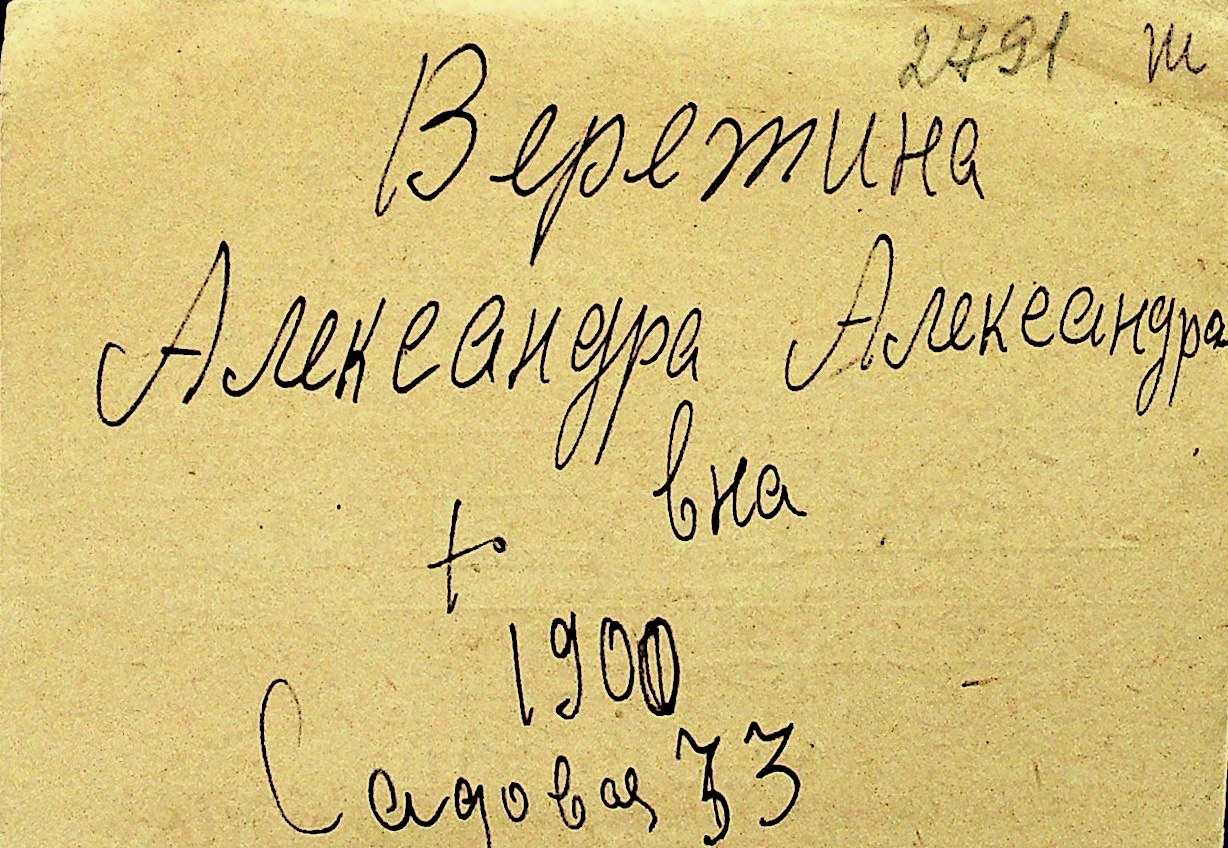 2791 ш
Веретина
Александра Александра
вна
+
1900
Садовая 33